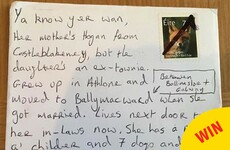 Ya know yer wan,
Éire
Her mother's Hogan from
Castleblakeney, but the
daughter's an ex-townie.
Grew up in Athlone and
Between
Ballinasloe +
Galway
moved to Ballymacward when she
got married. Lives next door to
her in-laws now. She has a
a' children and 7 dogs and
WIN